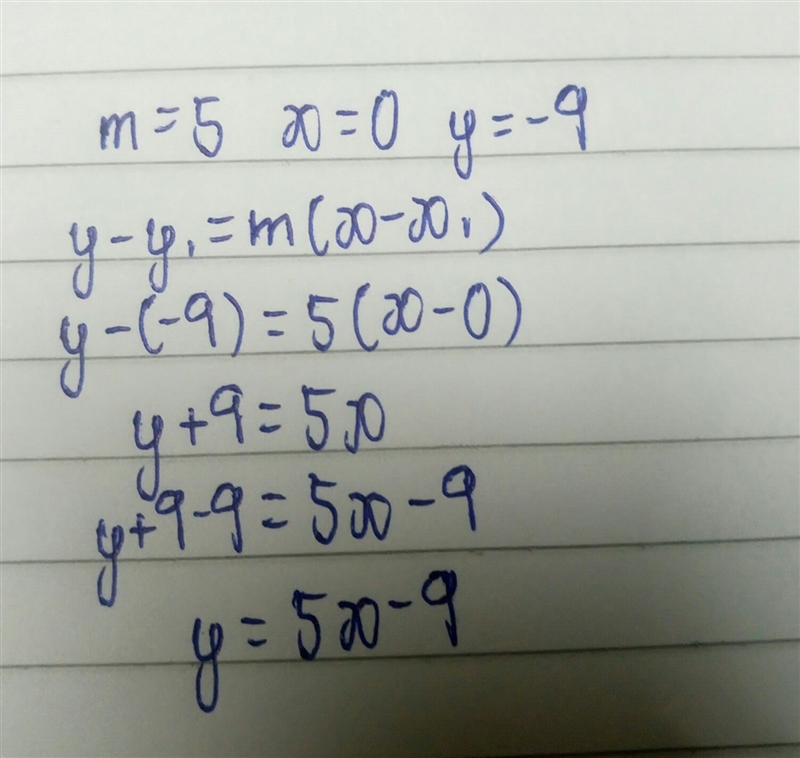 m = 5 x = 0 y = -9
y - y₁ = m(x - x₁)
y - (-9) = 5(x - 0)
y + 9 = 5x
y + 9 - 9 = 5x - 9
y = 5x - 9